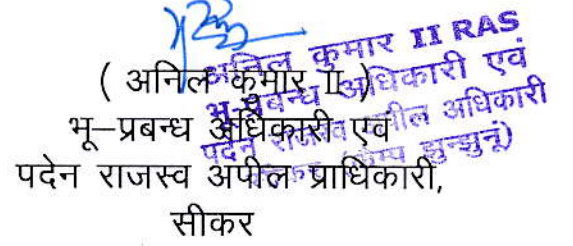 ( अनिल कुमार II )
भू–प्रबन्ध अधिकारी एवं
पदेन राजस्व अपील प्राधिकारी,
सीकर
अनिल कुमार II RAS
भू-प्रबन्ध अधिकारी एवं
पदेन राजस्व अपील अधिकारी
झुन्झुनूं)